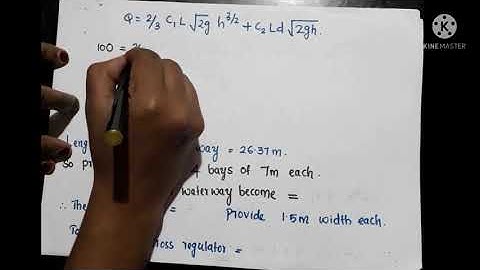 Q = 2/3 C₁ L √2g h^3/2 + C₂ Ld √2gh.
100 =
way = 26.37m.
So bays of 7m each.
waterway become =
∴ The = provide 1.5m width each.
regulator =
KINEMASTER